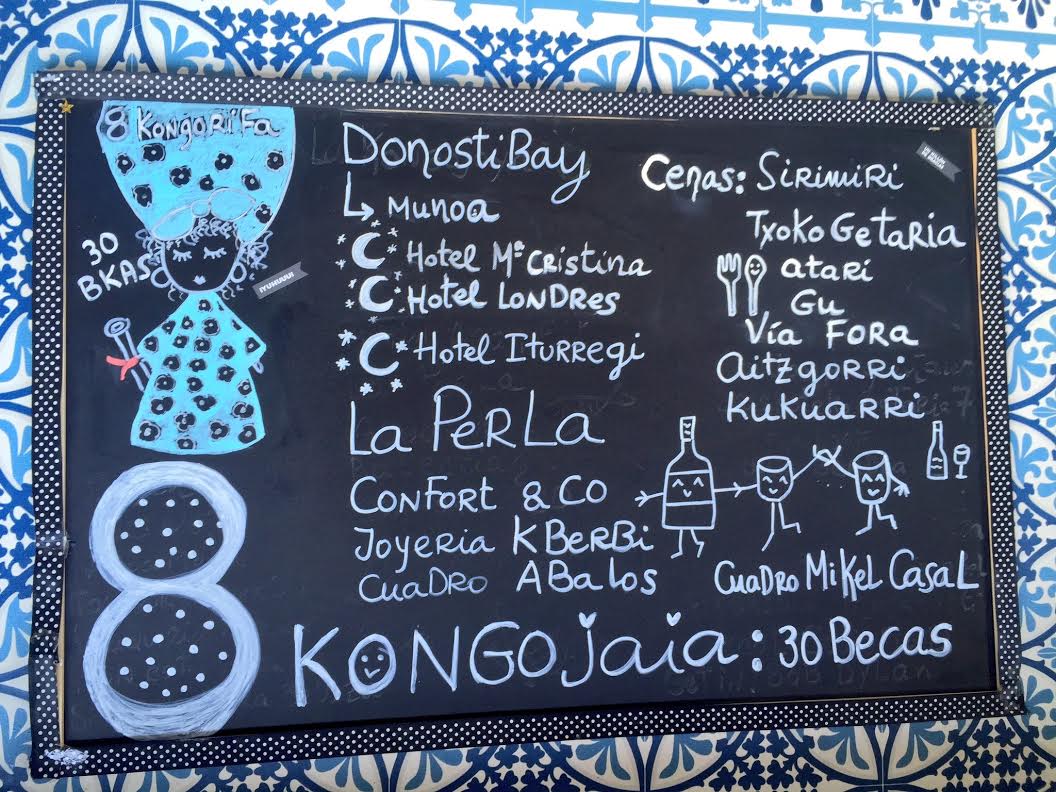 8 KONGORIFa
30
BKAS
IYUHUUU!
DonostiBay
↳ Munoa
Hotel Mª CRistina
Hotel LonDRes
Hotel Iturregi
La PeRLa
Confort & Co
Joyeria K BeRBi
CuaDRo ABalos
Cenas: SiRimiRi
Txoko GetaRia
atari
Gu
Vía FoRa
Aitzgorri
Kukuarri
CuaDRo MiKeL CasaL
8
KONGOJaia: 30 Becas